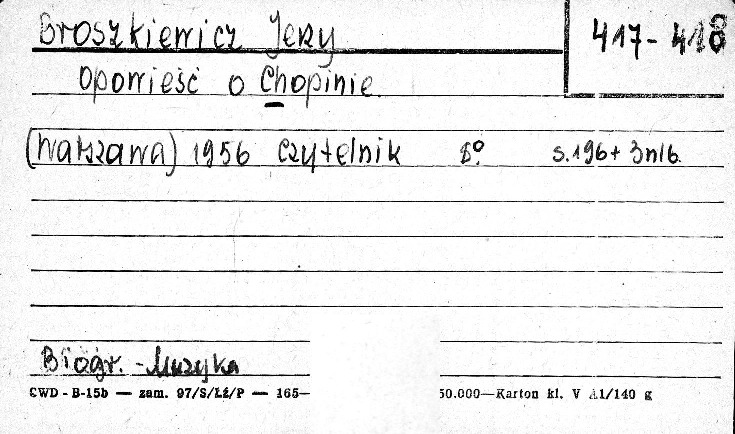 Broszkiewicz Jerzy 417-418
Opowieść o Chopinie.
(Warszawa) 1956 Czytelnik 8° s.196+3nlb.
Biogr. - Muzyka
CWD - B-15b — zam. 97/S/Łź/P — 165— 50.000—Karton kl. V A1/140 g